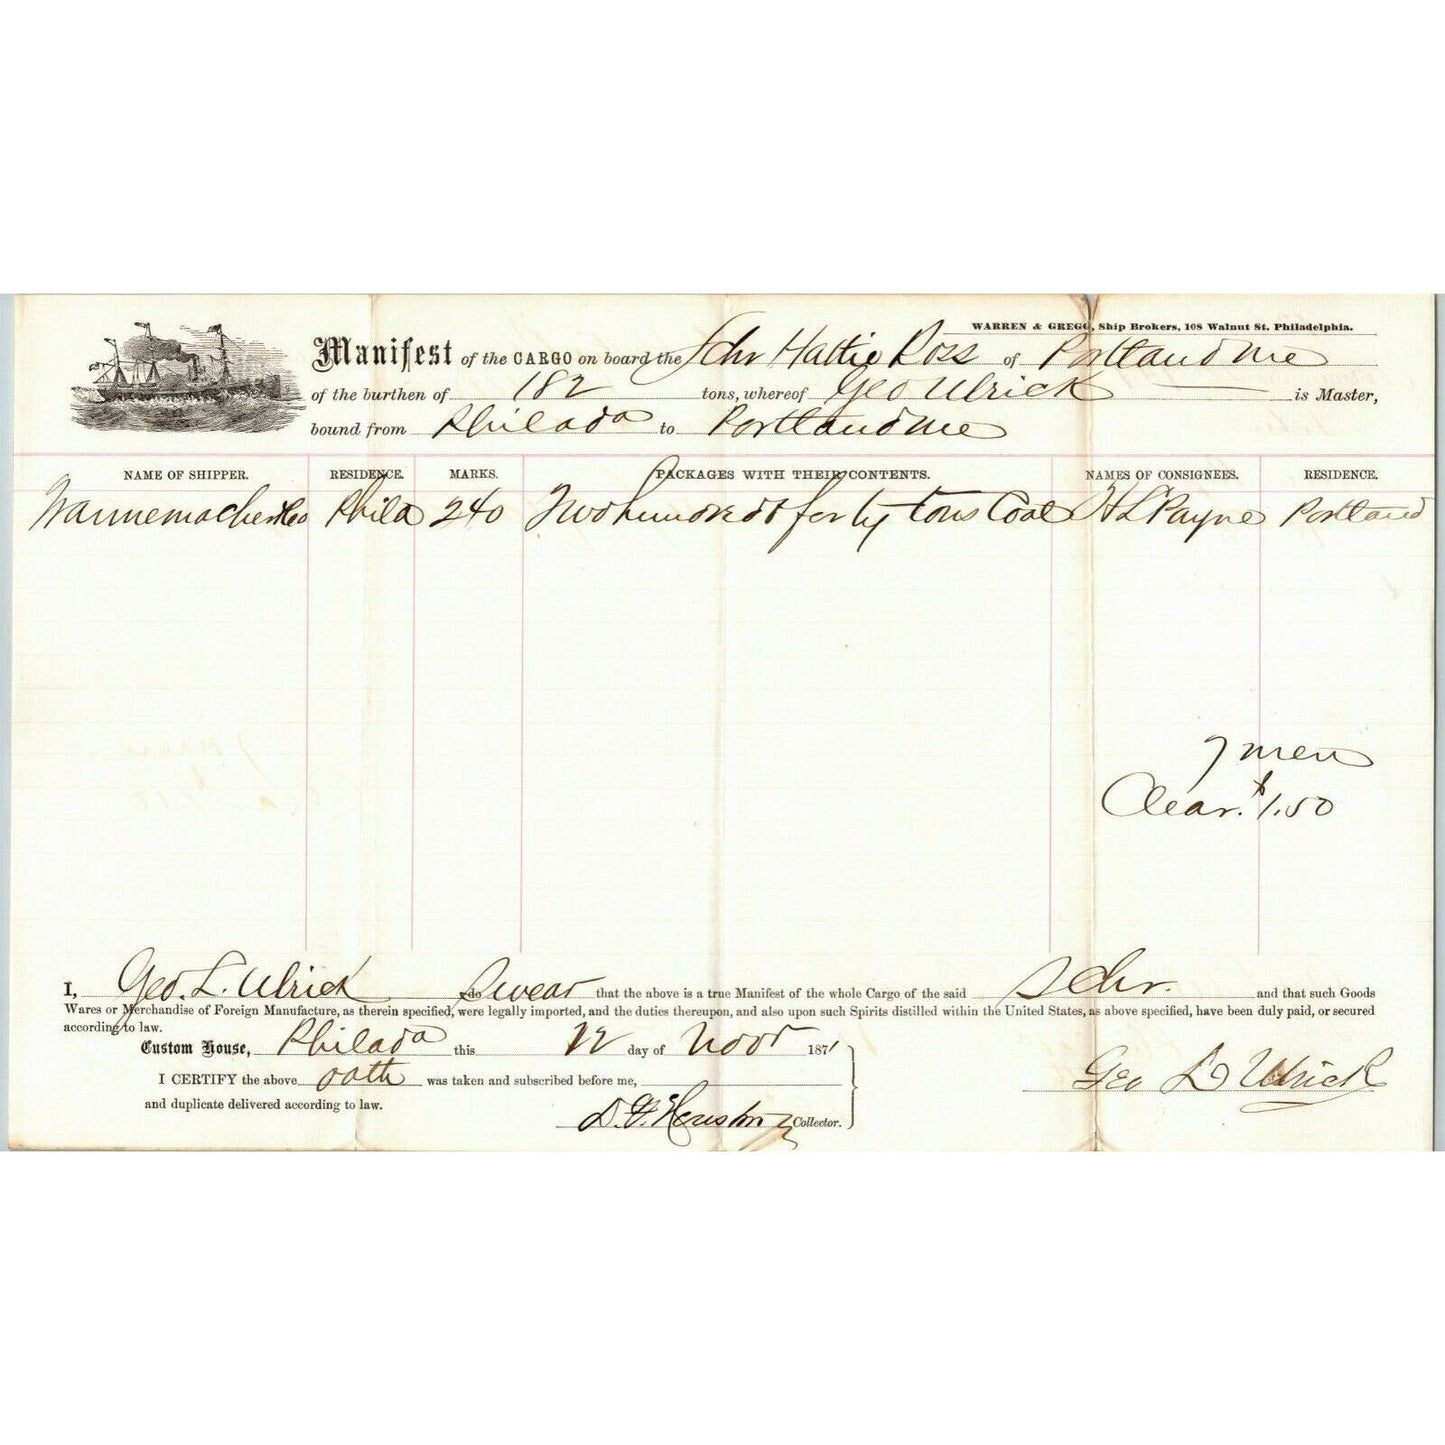 WARREN & GREGG, Ship Brokers, 108 Walnut St. Philadelphia.
Manifest of the CARGO on board the Schr Hattie Ross of Portland Me
of the burthen of 182 tons, whereof Geo Ulrick is Master,
bound from Philada to Portland Me
NAME OF SHIPPER. RESIDENCE. MARKS. PACKAGES WITH THEIR CONTENTS. NAMES OF CONSIGNEES. RESIDENCE.
Wannemacher & Co Phila 240 Two hundred & forty tons Coal H L Payne Portland
7 men
Clear. $1.50
I, Geo. L. Ulrick do Swear that the above is a true Manifest of the whole Cargo of the said Schr. and that such Goods
Wares or Merchandise of Foreign Manufacture, as therein specified, were legally imported, and the duties thereupon, and also upon such Spirits distilled within the United States, as above specified, have been duly paid, or secured
according to law.
Custom House, Philada this 12 day of Novr 1871
I CERTIFY the above oath was taken and subscribed before me,
Geo L Ulrick
and duplicate delivered according to law.
D. F. Houston Collector.